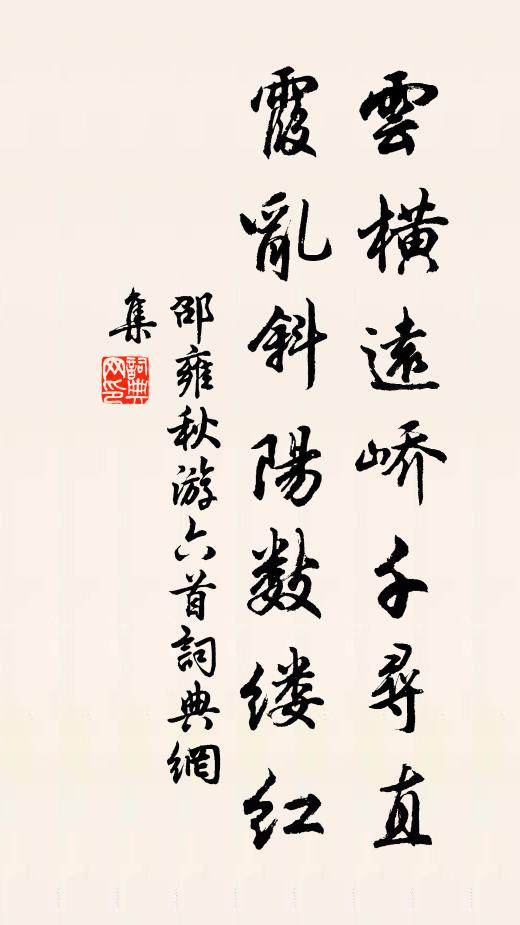 雲橫遠嶠千尋直
霞亂斜陽數缕紅
邵雍秋游六首詞典網
集
詞典
网印